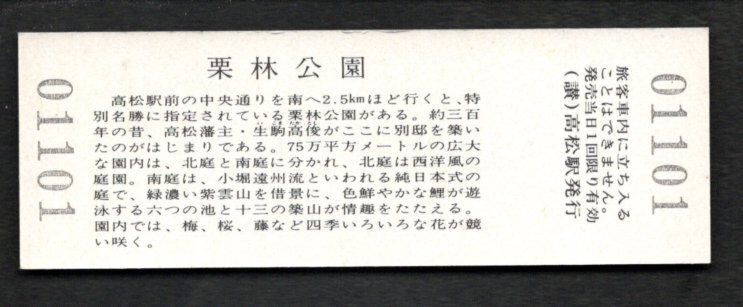 01101
栗林公園
高松駅前の中央通りを南へ2.5kmほど行くと、特
別名勝に指定されている栗林公園がある。約三百
年の昔、高松藩主・生駒高俊がここに別邸を築い
たのがはじまりである。75万平方メートルの広大
な園内は、北庭と南庭に分かれ、北庭は西洋風の
庭園。南庭は、小堀遠州流といわれる純日本式の
庭で、緑濃い紫雲山を借景に、色鮮やかな鯉が遊
泳する六つの池と十三の築山が情趣をたたえる。
園内では、梅、桜、藤など四季いろいろな花が競
い咲く。
旅客車内に立ち入る
ことはできません。
発売当日1回限り有効
(讃)高松駅発行
01101